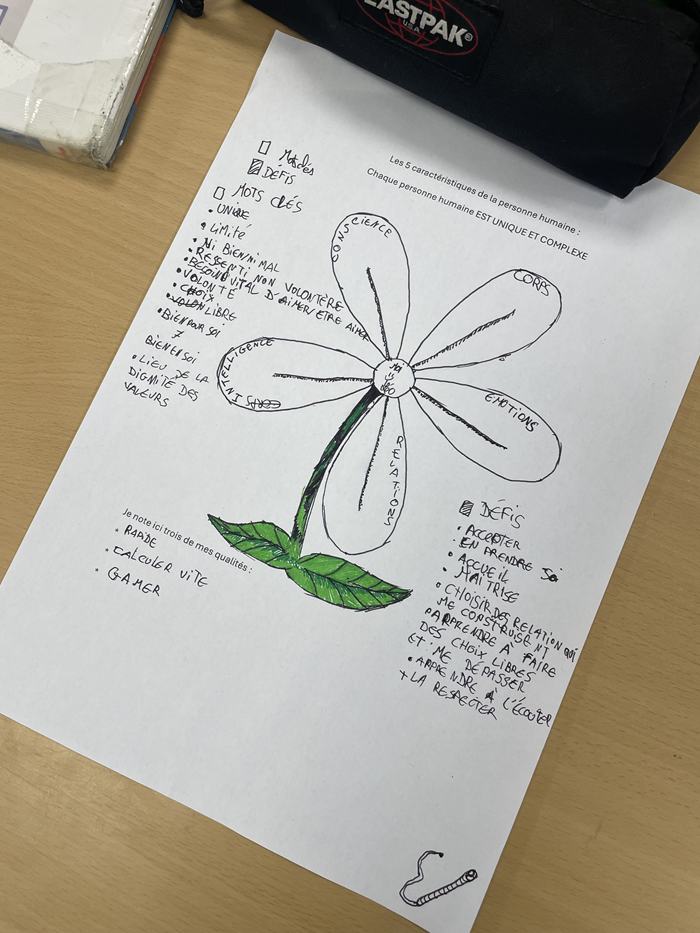 EASTPAK®
U.S.A
Les 5 caractéristiques de la personne humaine :
Chaque personne humaine EST UNIQUE ET COMPLEXE
Mots clés
DÉFIS
MOTS CLÉS
• UNIQUE
• Limité
• Ni BIEN/NI MAL
• RESSENTI NON VOLONTÈRE
• BESOIN VITAL D'AIMER/ETRE AIMER
• VOLONTÉ
• CHOIX
• LIBRE
• BIEN POUR SOI
≠
BIEN EN SOI
• LIEU DE LA
DIGNITÉ DES
VALEURS
CONSCIENCE
CORPS
INTELLIGENCE
EMOTIONS
RELATIONS
DÉFIS
• ACCEPTER
EN PRENDRE SOI
• ACCUEIL
• MAITRISE
• CHOISIR DES RELATION QUI
ME CONSTRUISENT
APPRENDRE À FAIRE
DES CHOIX LIBRES
ET ME DÉPASSER
• APPRENDRE À L'ÉCOUTER
+ LA RESPECTER
Je note ici trois de mes qualités :
• RAPIDE
• CALCULER VITE
• GAMER